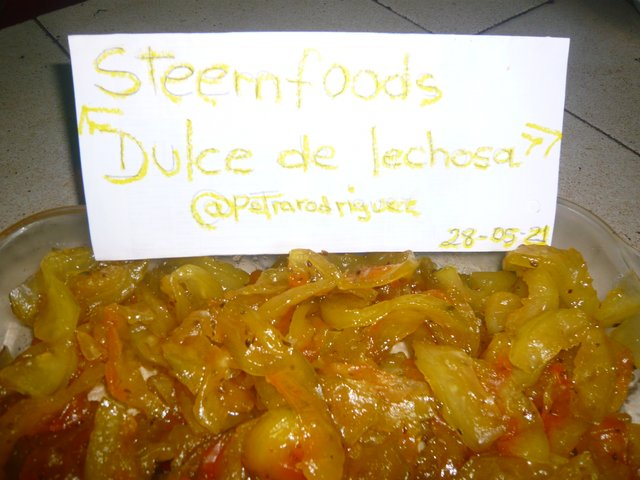 Steemfoods
"Dulce de lechosa"
@petrarodriguez
28-05-21